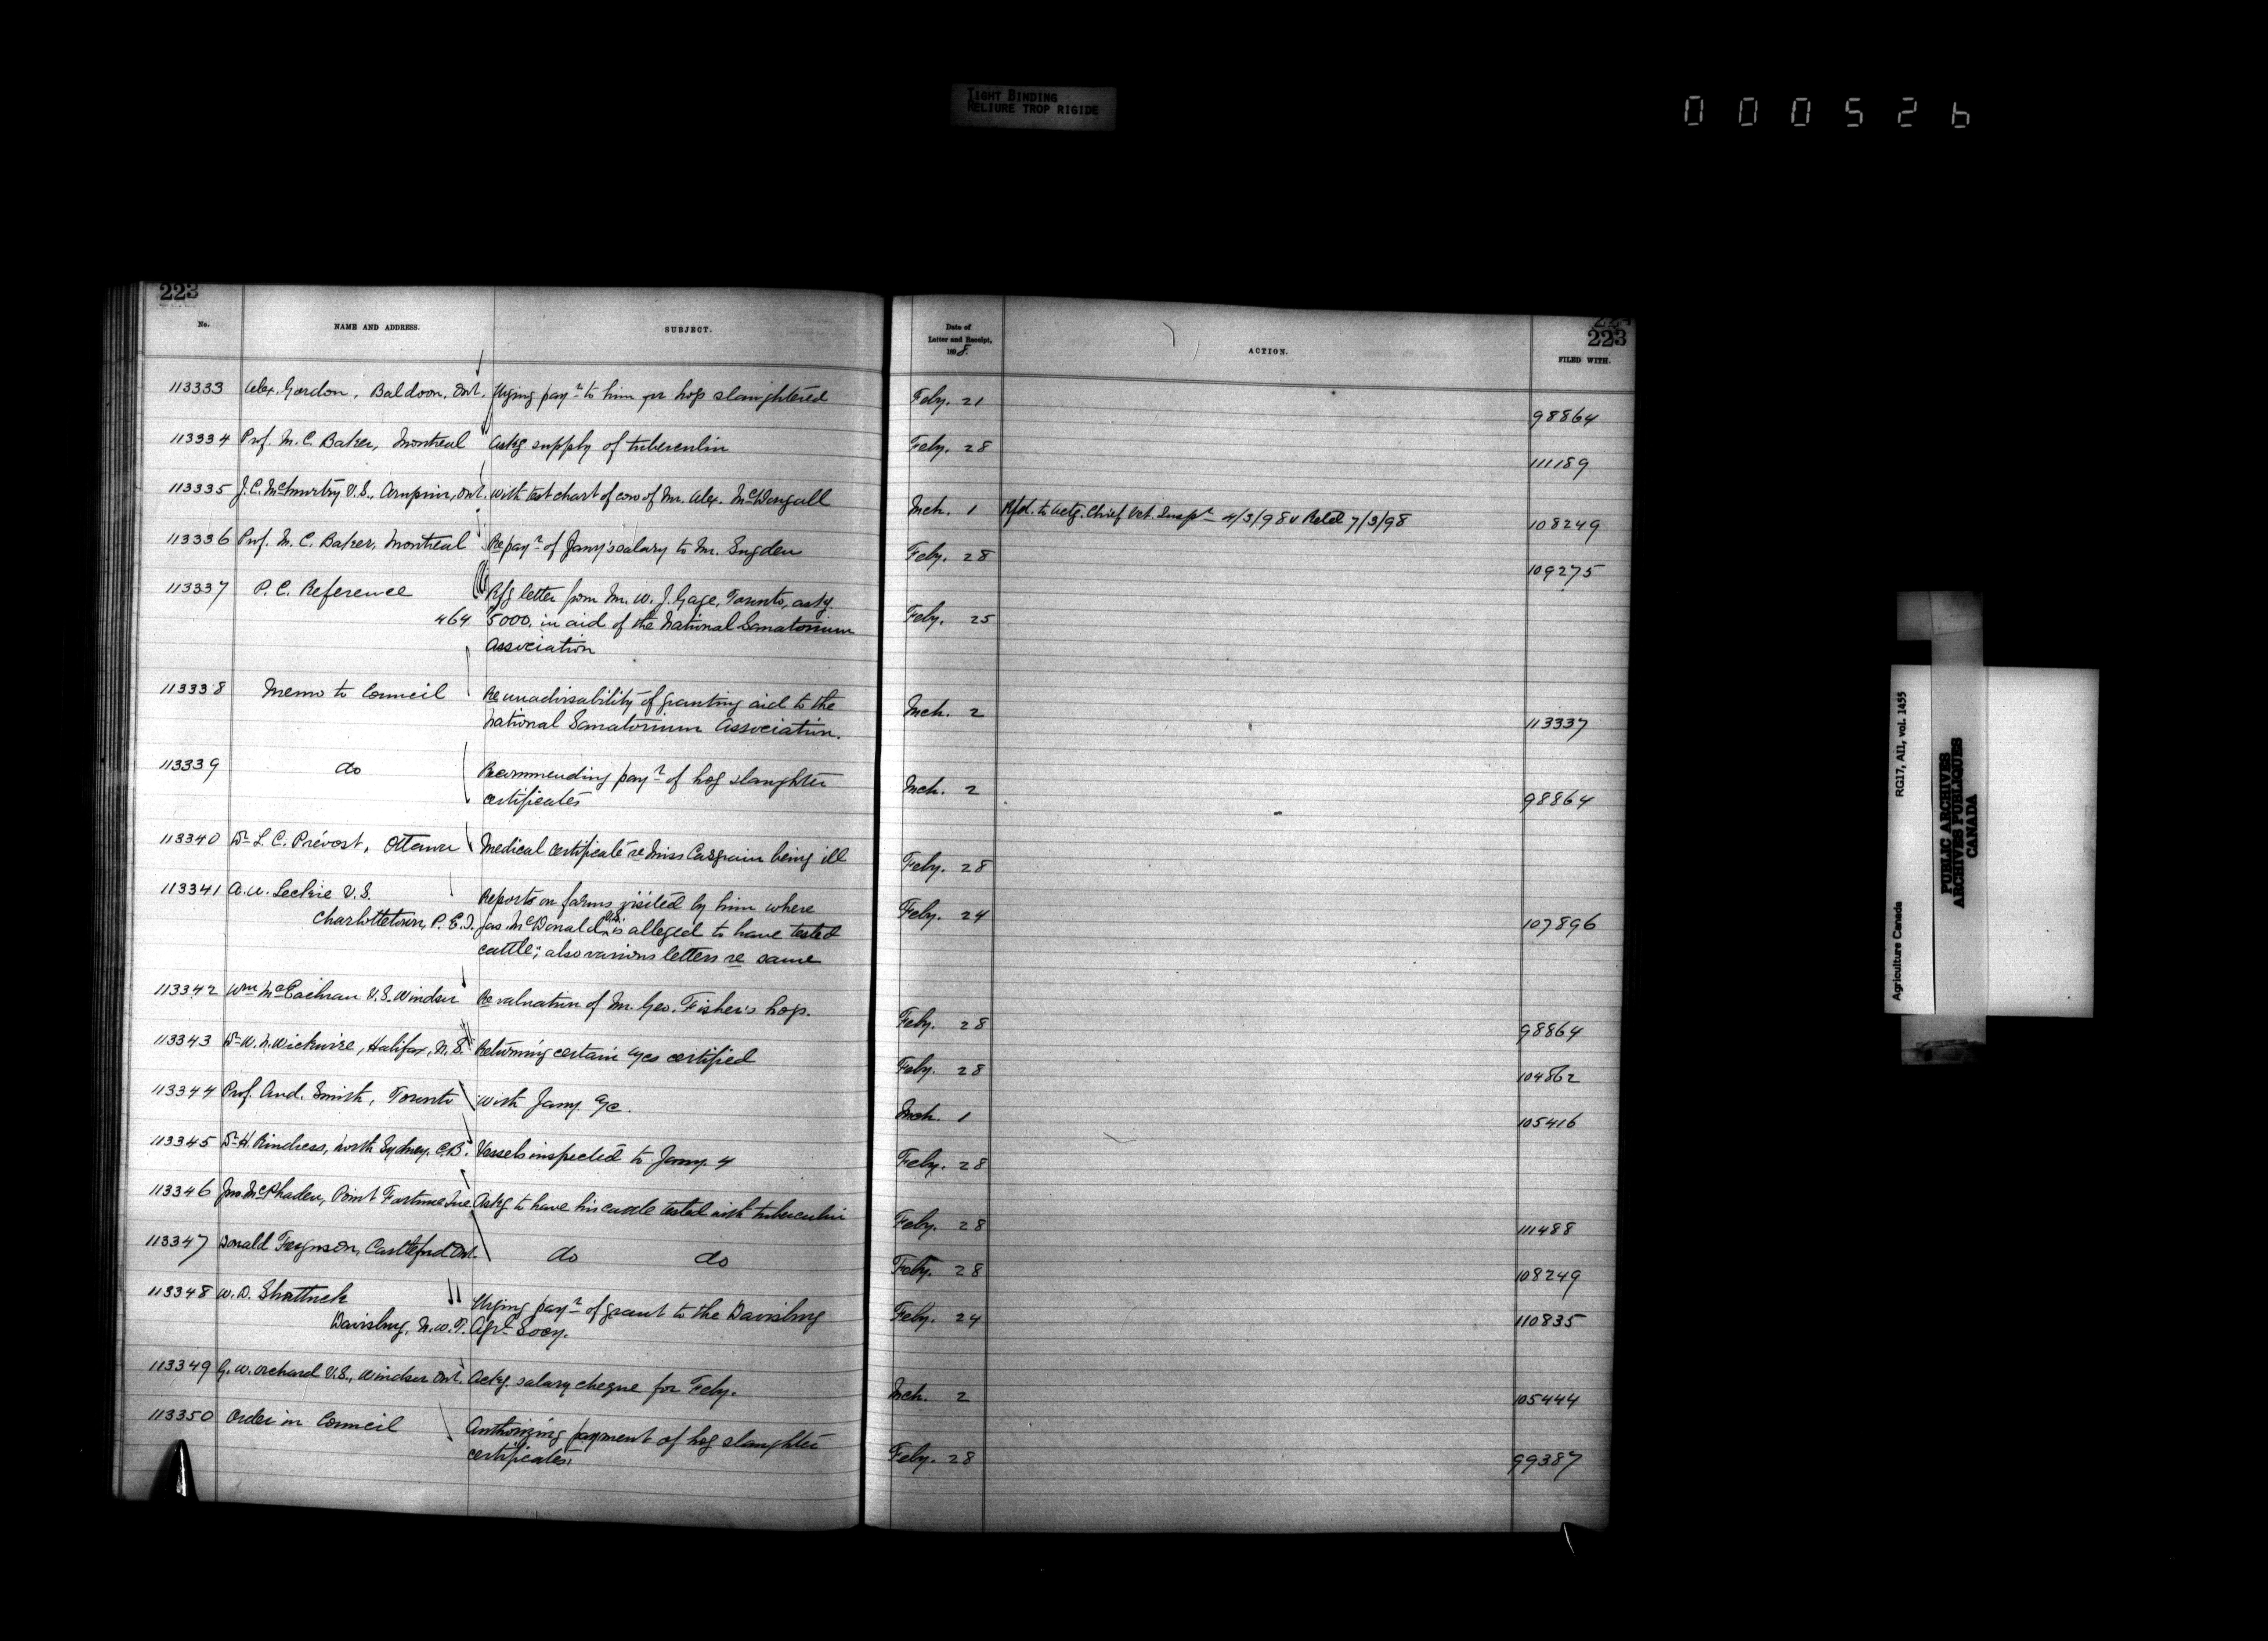 TIGHT BINDING
RELIURE TROP RIGIDE
000526
223
No. NAME AND ADDRESS. SUBJECT.
Date of
Letter and Receipt,
1898.
ACTION.
223
FILED WITH.
113333 Alex. Gordon, Baldoon, Ont. Urging payt to him for hogs slaughtered Feby. 21 98864
113334 Prof. M. C. Baker, Montreal Askg. supply of tuberculin Feby. 28 111189
113335 J. C. McMurtry V.S., Arnprior, Ont. With test chart of cow of Mr. Alex. McDougall Mch. 1 Rfd. to Actg. Chief Vet. Inspr 4/3/98 & Retd 7/3/98 108249
113336 Prof. M. C. Baker, Montreal Re payt of Jany's salary to Mr. Sugden Feby. 28 109275
113337 P. C. Reference Rfg letter from Mr. W. J. Gage, Toronto, askg.
464 $5000. in aid of the National Sanatorium Feby. 25
Association
113338 Memo to Council Re unadvisability of granting aid to the
National Sanatorium Association. Mch. 2 113337
113339 do Recommending payt of hog slaughter
certificates Mch. 2 98864
113340 Dr L. C. Prévost, Ottawa Medical certificate re Miss Casgrain being ill Feby. 28
113341 A. W. Leckie V.S. Reports on farms visited by him where
Charlottetown, P. E. I. Jas. McDonald V.S. is alleged to have tested Feby. 24 107896
cattle; also various letters re same
113342 Wm McEachran V.S. Windsor Re valuation of Mr. Geo. Fisher's hogs. Feby. 28 98864
113343 Dr W. N. Wickwire, Halifax, N.S. Returning certain a/cs certified Feby. 28 104862
113344 Prof. And. Smith, Toronto With Jany. a/c. Mch. 1 105416
113345 Dr H. Rindress, North Sydney, C.B. Vessels inspected to Jany. 4 Feby. 28
113346 Jno McPhaden, Point Fortune Que Askg to have his cattle tested with tuberculin Feby. 28 111488
113347 Donald Ferguson, Castleford Ont. do do Feby. 28 108249
113348 W. D. Shattuck Urging payt of grant to the Davisburg
Davisburg, N.W.T. Agrl Socy. Feby. 24 110835
113349 G. W. Orchard V.S., Windsor Ont. Ackg. salary cheque for Feby. Mch. 2 105444
113350 Order in Council Authorizing payment of hog slaughter
certificates. Feby. 28 99387
Agriculture Canada RG17, AII, vol. 1455
PUBLIC ARCHIVES
ARCHIVES PUBLIQUES
CANADA